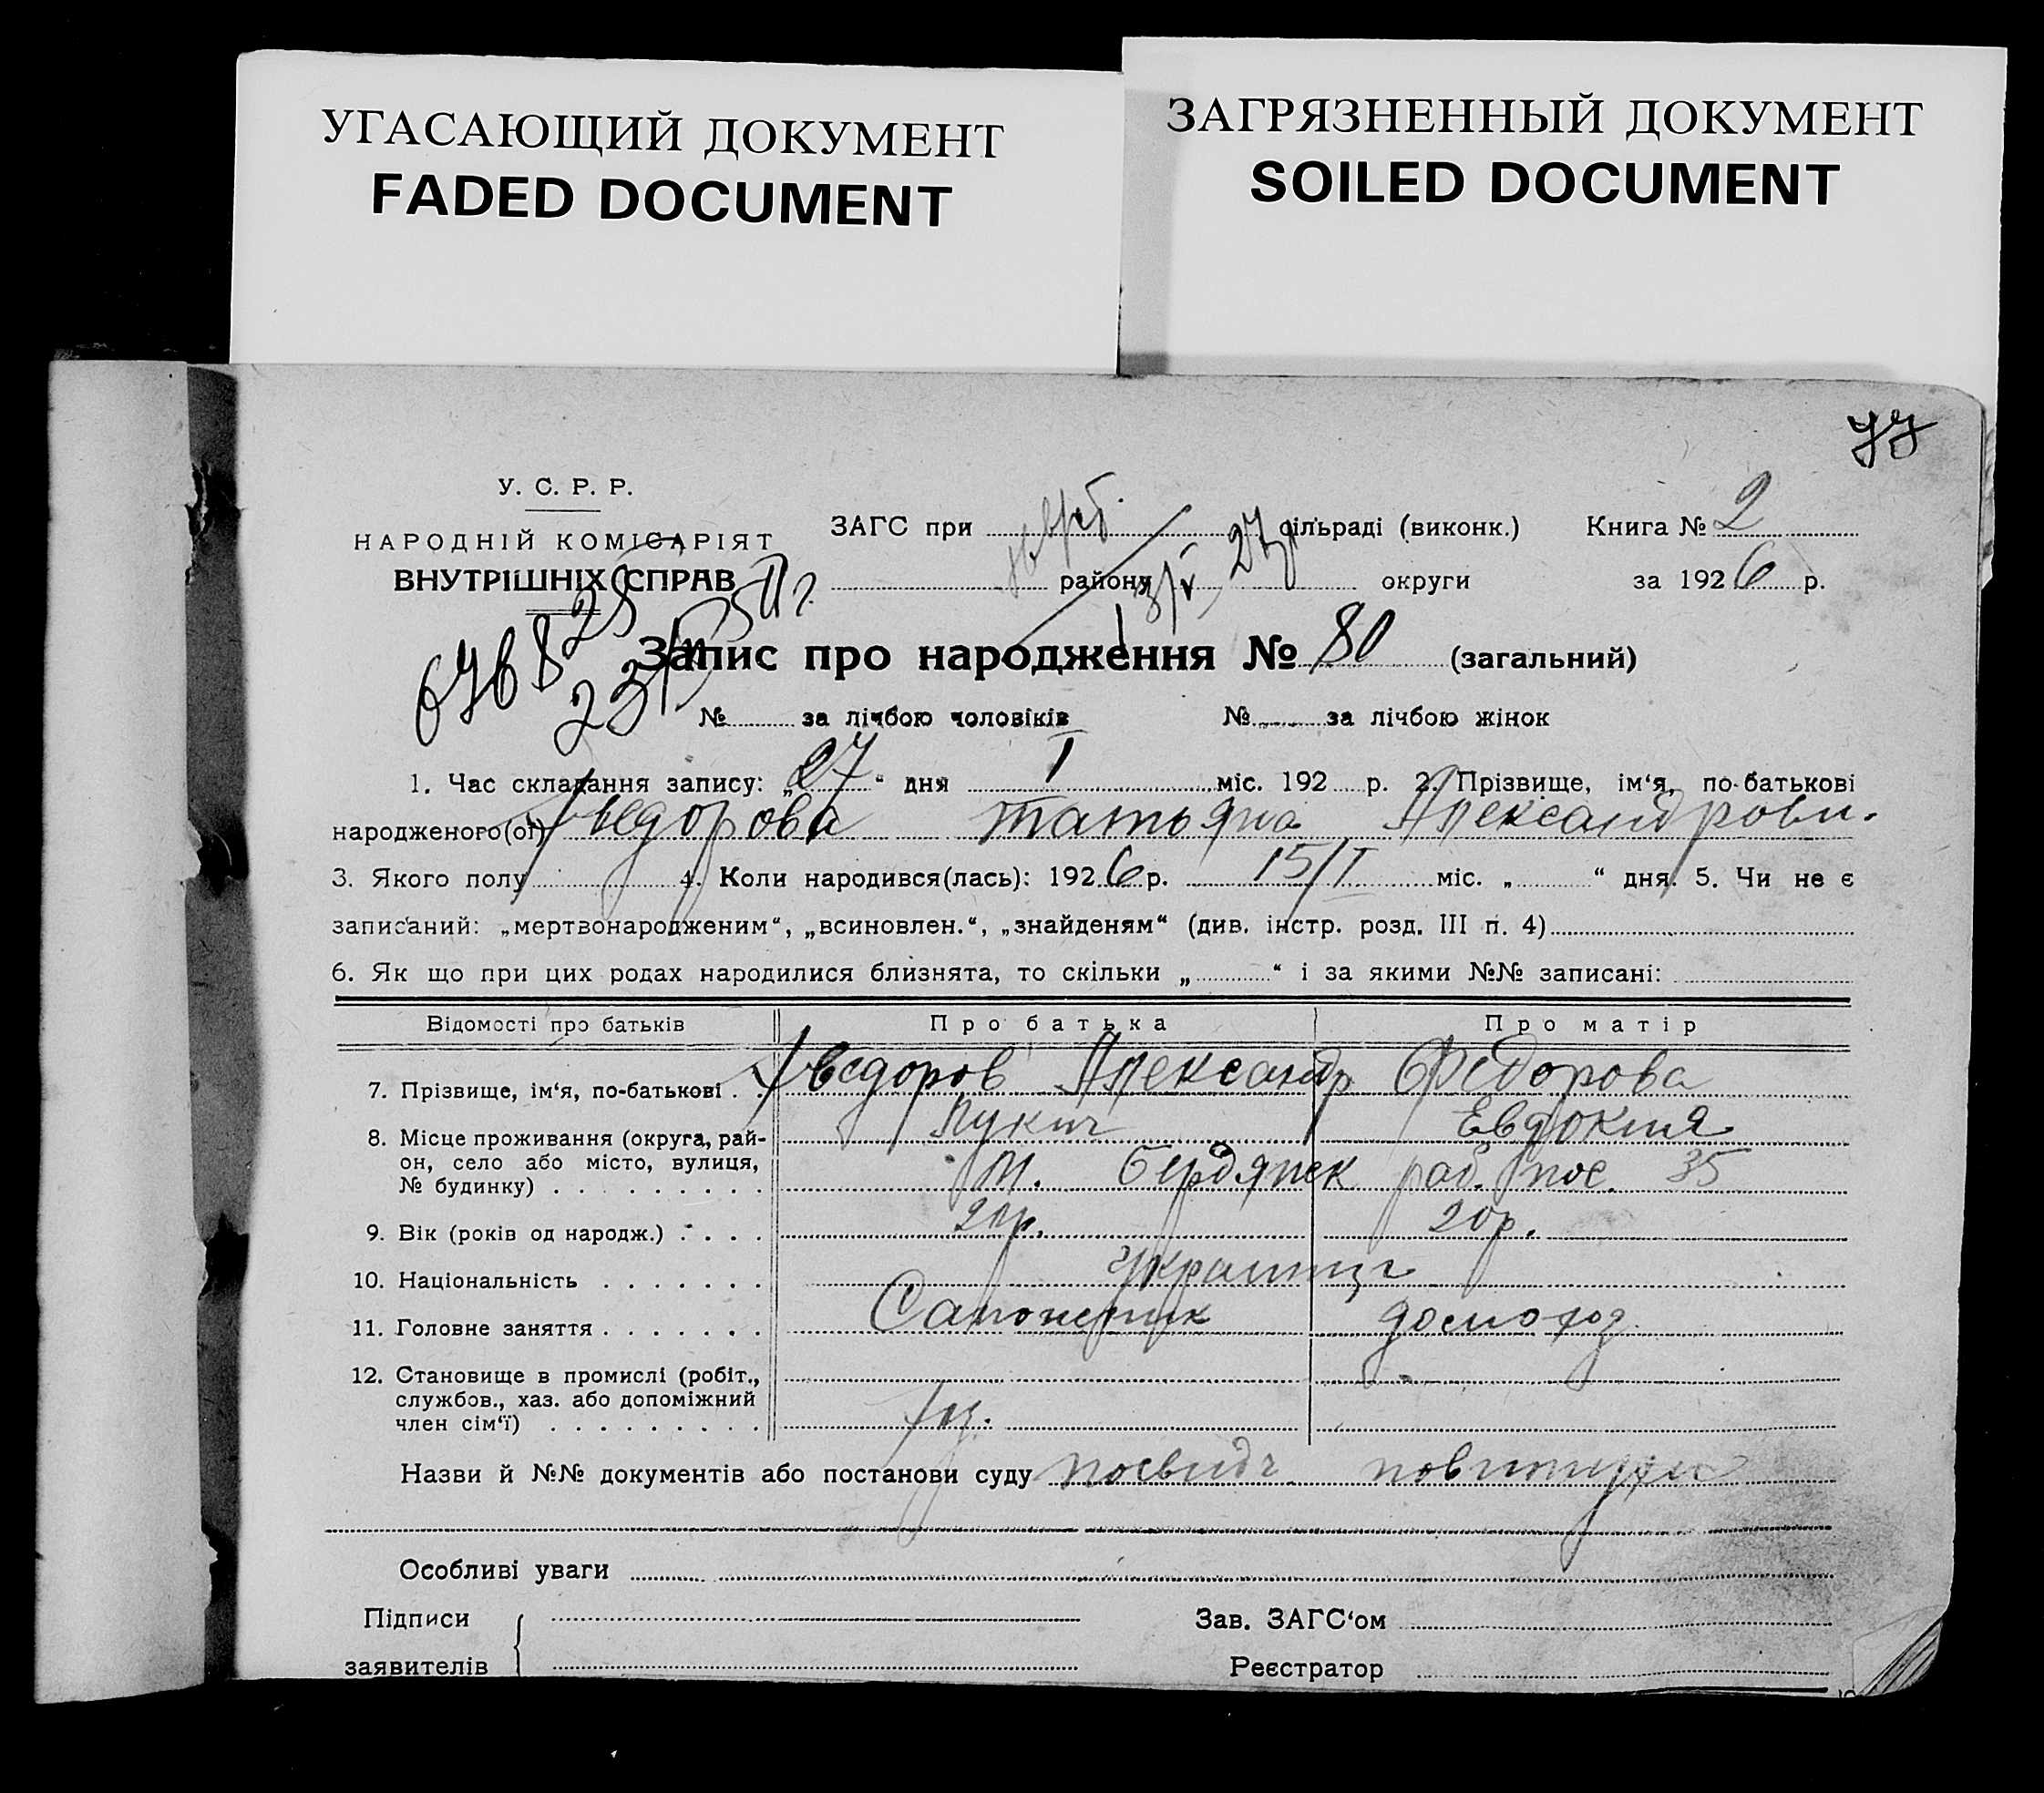 УГАСАЮЩИЙ ДОКУМЕНТ
FADED DOCUMENT
ЗАГРЯЗНЕННЫЙ ДОКУМЕНТ
SOILED DOCUMENT
77
У. С. Р. Р.
НАРОДНІЙ КОМІСАРІЯТ
ВНУТРІШНІХ СПРАВ
ЗАГС при сільраді (виконк.) Книга № 2
району округи за 1926 р.
Запис про народження № 80 (загальний)
№ за лічбою чоловіків № за лічбою жінок
1. Час складання запису: „27“ дня I міс. 192 р. 2. Прізвище, ім‘я, по-батькові
народженого(ої) Федорова Татьяна Александровн.
3. Якого полу 4. Коли народився(лась): 1926 р. 15/I міс. „ “ дня. 5. Чи не є
записаний: „мертвонародженим“, „всиновлен.“, „знайденям“ (див. інстр. розд. III п. 4)
6. Як що при цих родах народилися близнята, то скільки „ “ і за якими №№ записані:
Відомості про батьків Про батька Про матір
7. Прізвище, ім‘я, по-батькові . . Федоров Александр Федорова
Лукич Евдокия
8. Місце проживання (округа, рай-
он, село або місто, вулиця,
№ будинку) . . . . . . . . . м. Бердянск раб. пос. 35
9. Вік (років од народж.) . . . . 20р.
10. Національність . . . . . . . Украинці
11. Головне заняття . . . . . . . Сапожник домохоз
12. Становище в промислі (робіт.,
службов., хаз. або допоміжний
член сім‘ї) . . . . . . . . . хоз.
Назви й №№ документів або постанови суду посвидч повитухи
Особливі уваги
Підписи
заявителів
Зав. ЗАГС‘ом
Реєстратор